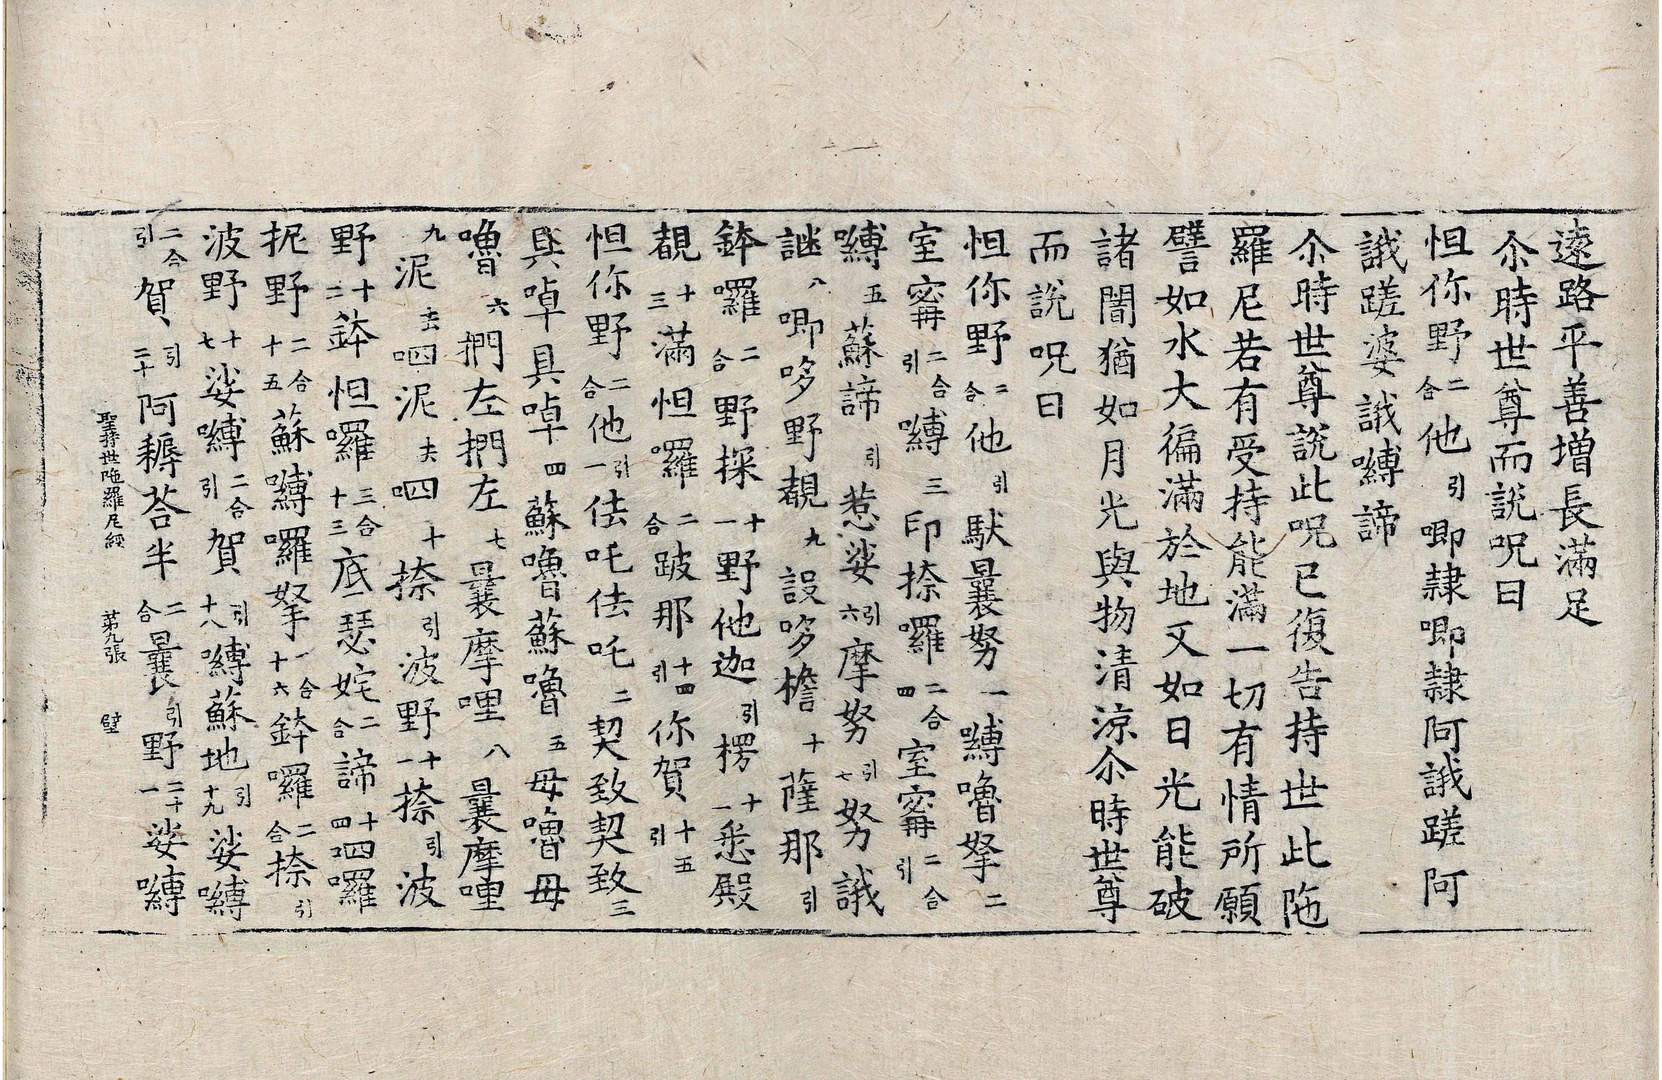 遠路平善增長滿足
尒時世尊而說呪曰
怛你野二合他引唧隷唧隷阿誐蹉阿
誐蹉婆誐嚩諦
尒時世尊說此呪已復告持世此陁
羅尼若有受持能滿一切有情所願
譬如水大徧滿於地又如日光能破
諸闇猶如月光與物清涼尒時世尊
而說呪曰
怛你野二合他引馱曩努一嚩嚕拏二
室寗二合引嚩三印捺囉二合四室寗二合引
嚩五蘇諦引惹娑引六摩努引七努誐
謎八唧哆野覩九設哆檐十薩那引
鉢囉二合野探十一野他迦引楞十一悉殿
覩十三滿怛囉二合跛那十四引你賀十五引
怛你野二合他引一佉吒佉吒二契致契致三
具啅具啅四蘇嚕蘇嚕五母嚕母
嚕六捫左捫左七曩摩哩八曩摩哩
九泥呬泥呬十捺引波野十一捺引波
野十二鉢怛囉三合十三底瑟姹二合諦十四呬囉
抳野二合十五蘇嚩囉拏一合十六鉢囉二合捺引
波野十七娑嚩二合引賀引十八嚩蘇地引十九娑嚩
二合引賀引二十阿耨荅半二合曩引野二十一娑嚩
聖持世陁羅尼經 第九張